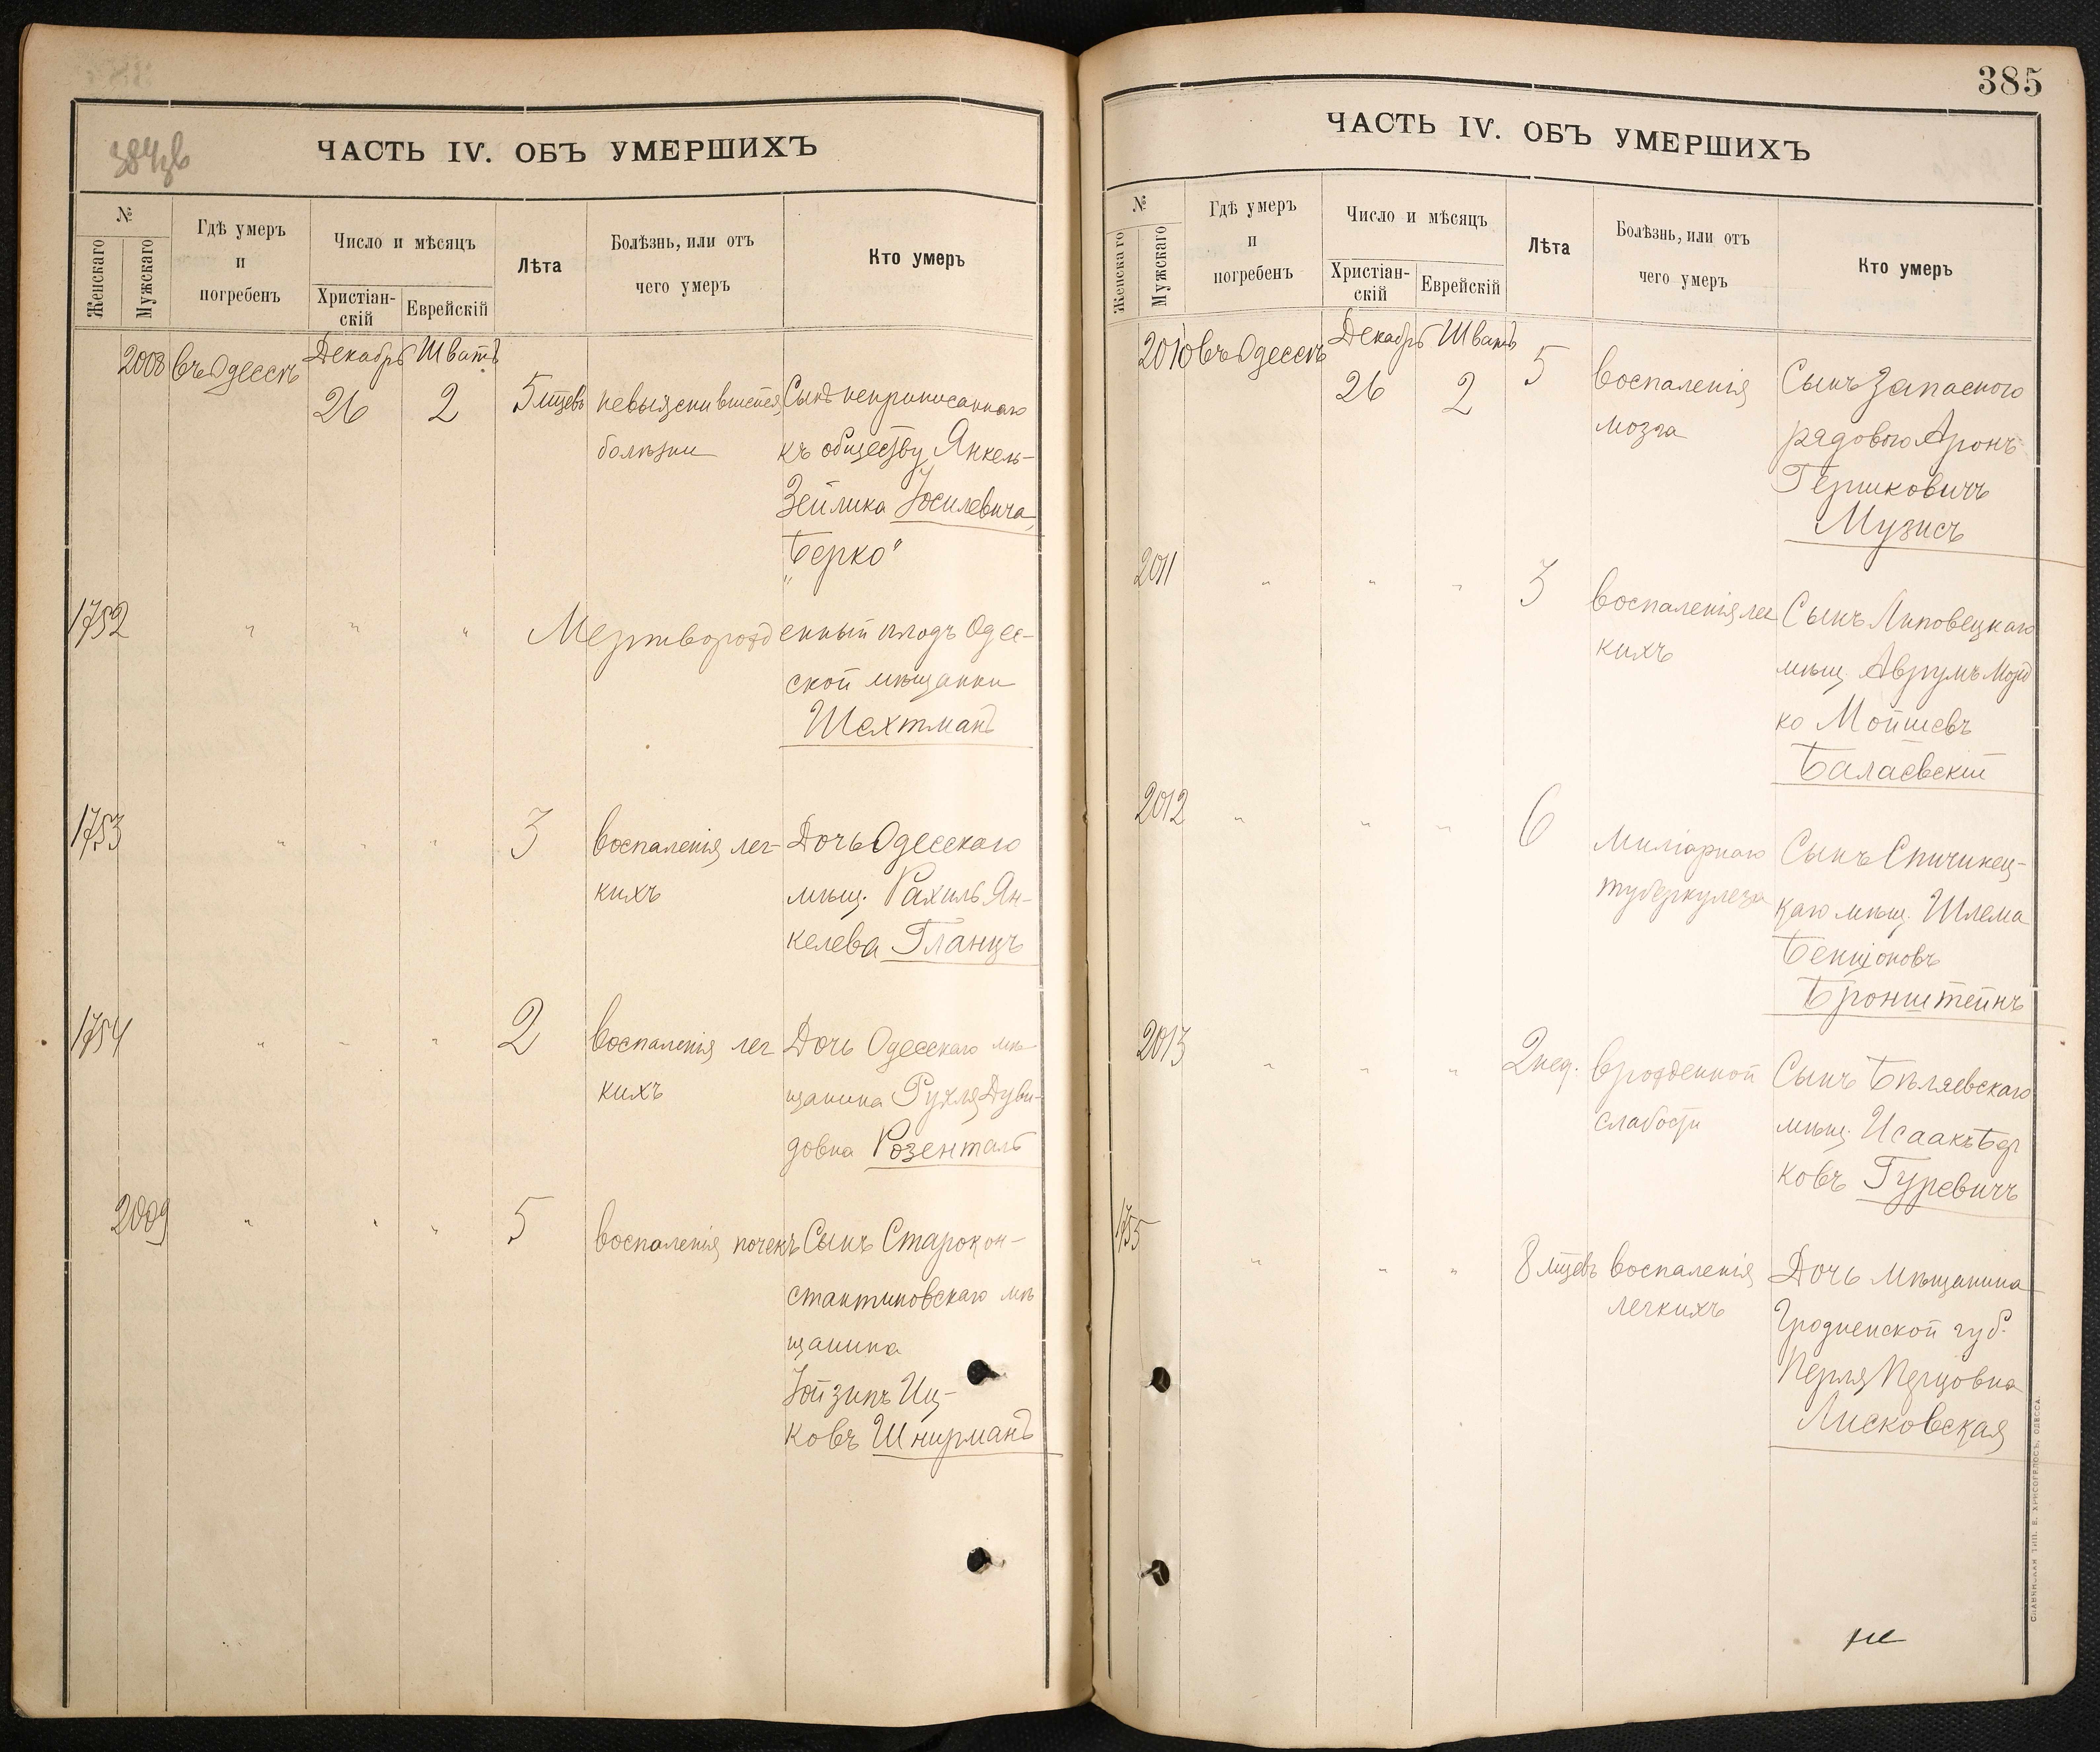 384об
ЧАСТЬ IV. ОБЪ УМЕРШИХЪ
№
Женскаго
Мужскаго
Гдѣ умеръ
и
погребенъ
Число и мѣсяцъ
Христіан-
скій
Еврейскій
Лѣта
Болѣзнь, или отъ
чего умеръ
Кто умеръ
2008 въ Одессѣ Декабрь Шватъ
26 2 5 мцевъ невыяснившейся Сынъ неприписаннаго
болѣзни къ обществу Янкель-
Зейлика Іосилевича,
"Берко"
1752 " " " Мертворожденный плодъ Одес-
ской мѣщанки
Шехтманъ
1753 " " " " 3 воспаленія лег- Дочь Одесскаго
кихъ мѣщ. Рахиль Ян-
келева Гланцъ
1754 " " " 2 воспаленія лег Дочь Одесскаго мѣ
кихъ щанина Рухля Дуви-
довна Розенталь
2009 " " " 5 воспаленія почекъ Сынъ Старокон-
стантиновскаго мѣ
щанина
Іойзипъ Иц-
ковъ Шнирманъ
385
ЧАСТЬ IV. ОБЪ УМЕРШИХЪ
№
Женскаго
Мужскаго
Гдѣ умеръ
и
погребенъ
Число и мѣсяцъ
Христіан-
скій
Еврейскій
Лѣта
Болѣзнь, или отъ
чего умеръ
Кто умеръ
2010 въ Одессѣ Декабрь Шватъ
26 2 5 воспаленія Сынъ Запасного
мозга рядового Аронъ
Гершковичъ
Музисъ
2011 " " " 3 воспаленія лег Сынъ Липовецкаго
кихъ мѣщ. Аврумъ Морд
ко Мойшевъ
Балаевскій
2012 " " " 6 Миліарнаго Сынъ Спичинец-
туберкулеза каго мѣщ. Шлема
Бенціоновъ
Бронштейнъ
2013 " " " 2 нед. врожденной Сынъ Бѣляевскаго
слабости мѣщ. Исаакъ Бер
ковъ Гуревичъ
1755 " " " 8 мцевъ воспаленія Дочь мѣщанина
легкихъ Гродненской губ.
Перля Перцовна
Лисковская
СЛАВЯНСКАЯ ТИП. Е. ХРИСОГЕЛОСЪ, ОДЕССА.